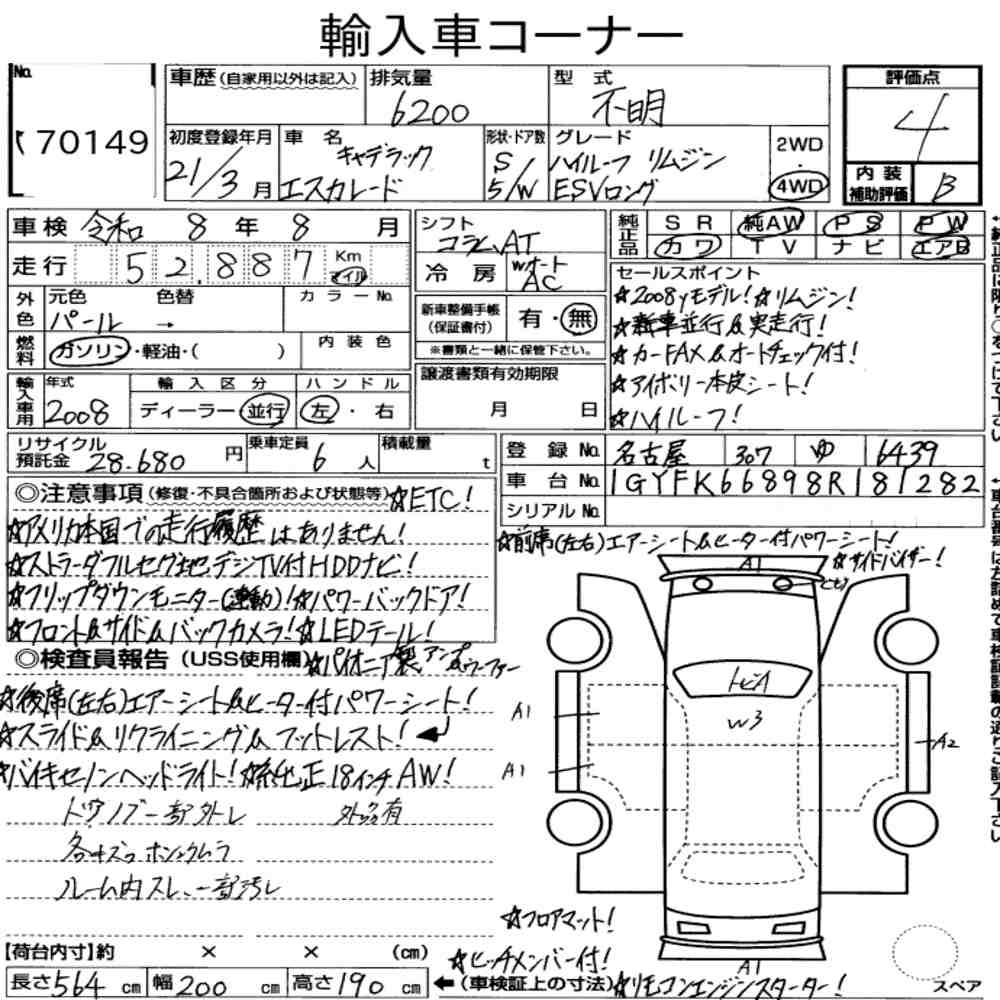 輸入車コーナー
No. 70149
車歴(自家用以外は記入)
排気量 6200
型式 不明
評価点 4
初度登録年月 21/3月
車名 キャデラック エスカレード
形状・ドア数 S 5/W
グレード ハイルーフ リムジン ESVロング
2WD・4WD
内装補助評価 B
車検 令和 8年 8月
シフト コラムAT
純正品 SR 純AW PS PW
カワ TV ナビ エアB
走行 52,887 Km マイル
冷房 Wオート AC
セールスポイント
☆2008yモデル!☆リムジン!
☆新車並行&実走行!
☆カーFAX&オートチェック付!
☆アイボリー本皮シート!
☆ハイルーフ!
外色 元色 色替 カラーNo.
パール →
新車整備手帳(保証書付) 有・無
※書類と一緒に保管下さい。
燃料 ガソリン・軽油・( )
内装色
譲渡書類有効期限
月 日
輸入車用 年式 2008
輸入区分 ディーラー・並行
ハンドル 左・右
リサイクル預託金 28,680円
乗車定員 6人
積載量 t
登録No. 名古屋 307 ゆ 6439
車台No. 1GYFK66898R181282
シリアルNo.
◎注意事項(修復・不具合箇所および状態等)☆ETC!
☆アメリカ本国での走行履歴はありません!
☆ストラーダフルセグ地デジTV付HDDナビ!
☆フリップダウンモニター(連動)!☆パワーバックドア!
☆フロント&サイド&バックカメラ!☆LEDテール!
☆前席(左右)エアーシート&ヒーター付パワーシート!
☆サイドバイザー!
◎検査員報告(USS使用欄)☆パイオニア製アンプ&ウーファー
☆後席(左右)エアーシート&ヒーター付パワーシート!
☆スライド&リクライニング&フットレスト!
☆バイキセノンヘッドライト!☆純正18インチAW!
ドアノブ一部外レ
外品有
ルーム内スレ、一部汚レ
A1
トビA
W3
A1
A1
A2
A1
☆フロアマット!
☆ヒッチメンバー付!
☆リモコンエンジンスターター!
【荷台内寸】約 × × (cm)
長さ564cm 幅200cm 高さ190cm ←(車検証上の寸法)
スペア